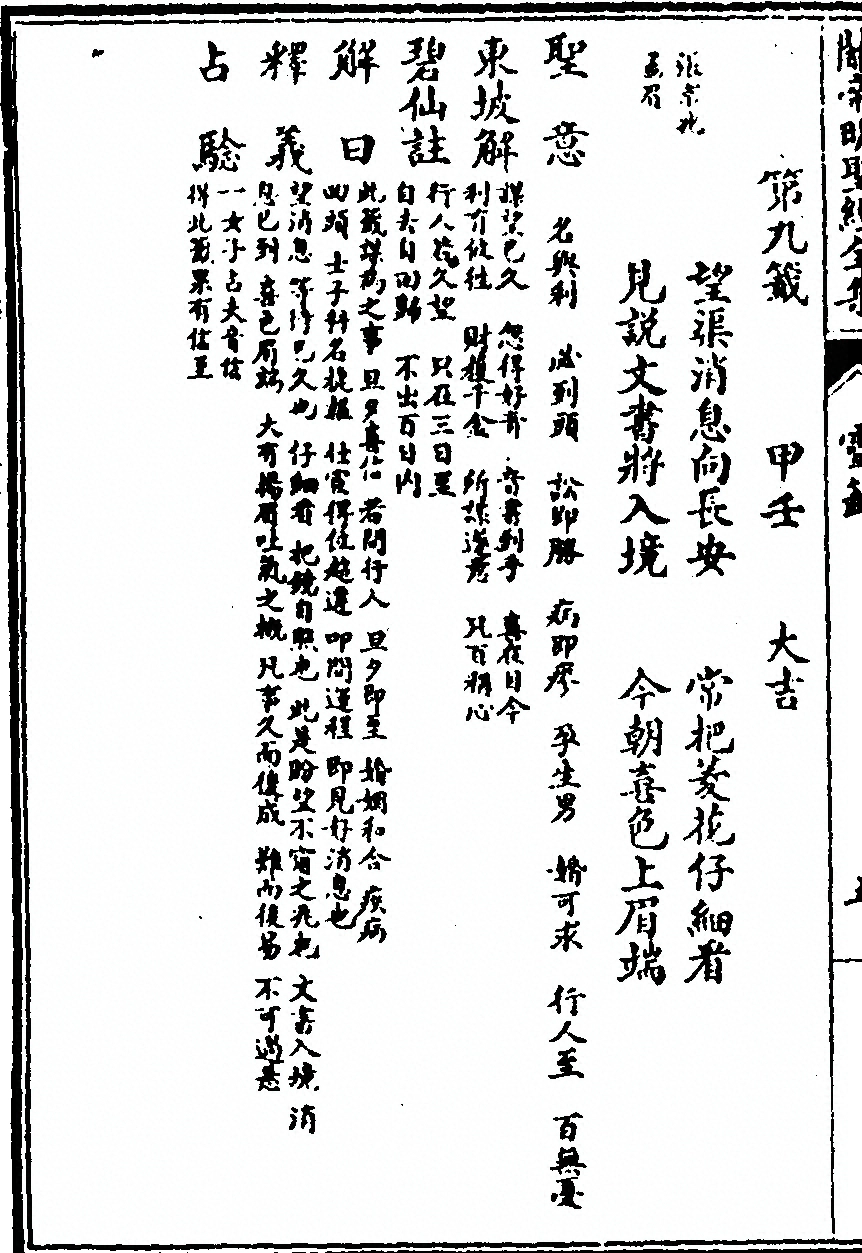 關帝明聖經全集
靈籤
第九籤 甲壬 大吉
望渠消息向長安 常把菱花仔細看
見說文書將入境 今朝喜色上眉端
聖意 名與利 必到頭 訟即勝 病即瘳 孕生男 婚可求 行人至 百無憂
東坡解 謀望已久 忽得好音 音書到手 喜在目今
利有攸往 財獲千金 所謀遂意 凡百稱心
碧仙註 行人若久望 只在三日至
自去自回歸 不出百日內
解曰 此籤謀為之事 旦夕喜信 若問行人 旦夕即至 婚姻和合 疾病
回頭 士子科名捷報 仕宦得位超遷 叩問運程 即見好消息也
釋義 望消息 等待已久也 仔細看 把鏡自照也 此是盼望不甯之兆也 文書入境 消
息已到 喜色眉端 大有揚眉吐氣之概 凡事久而後成 難而後易 不可過急
占驗 一女子占夫音信
得此籤果有信至